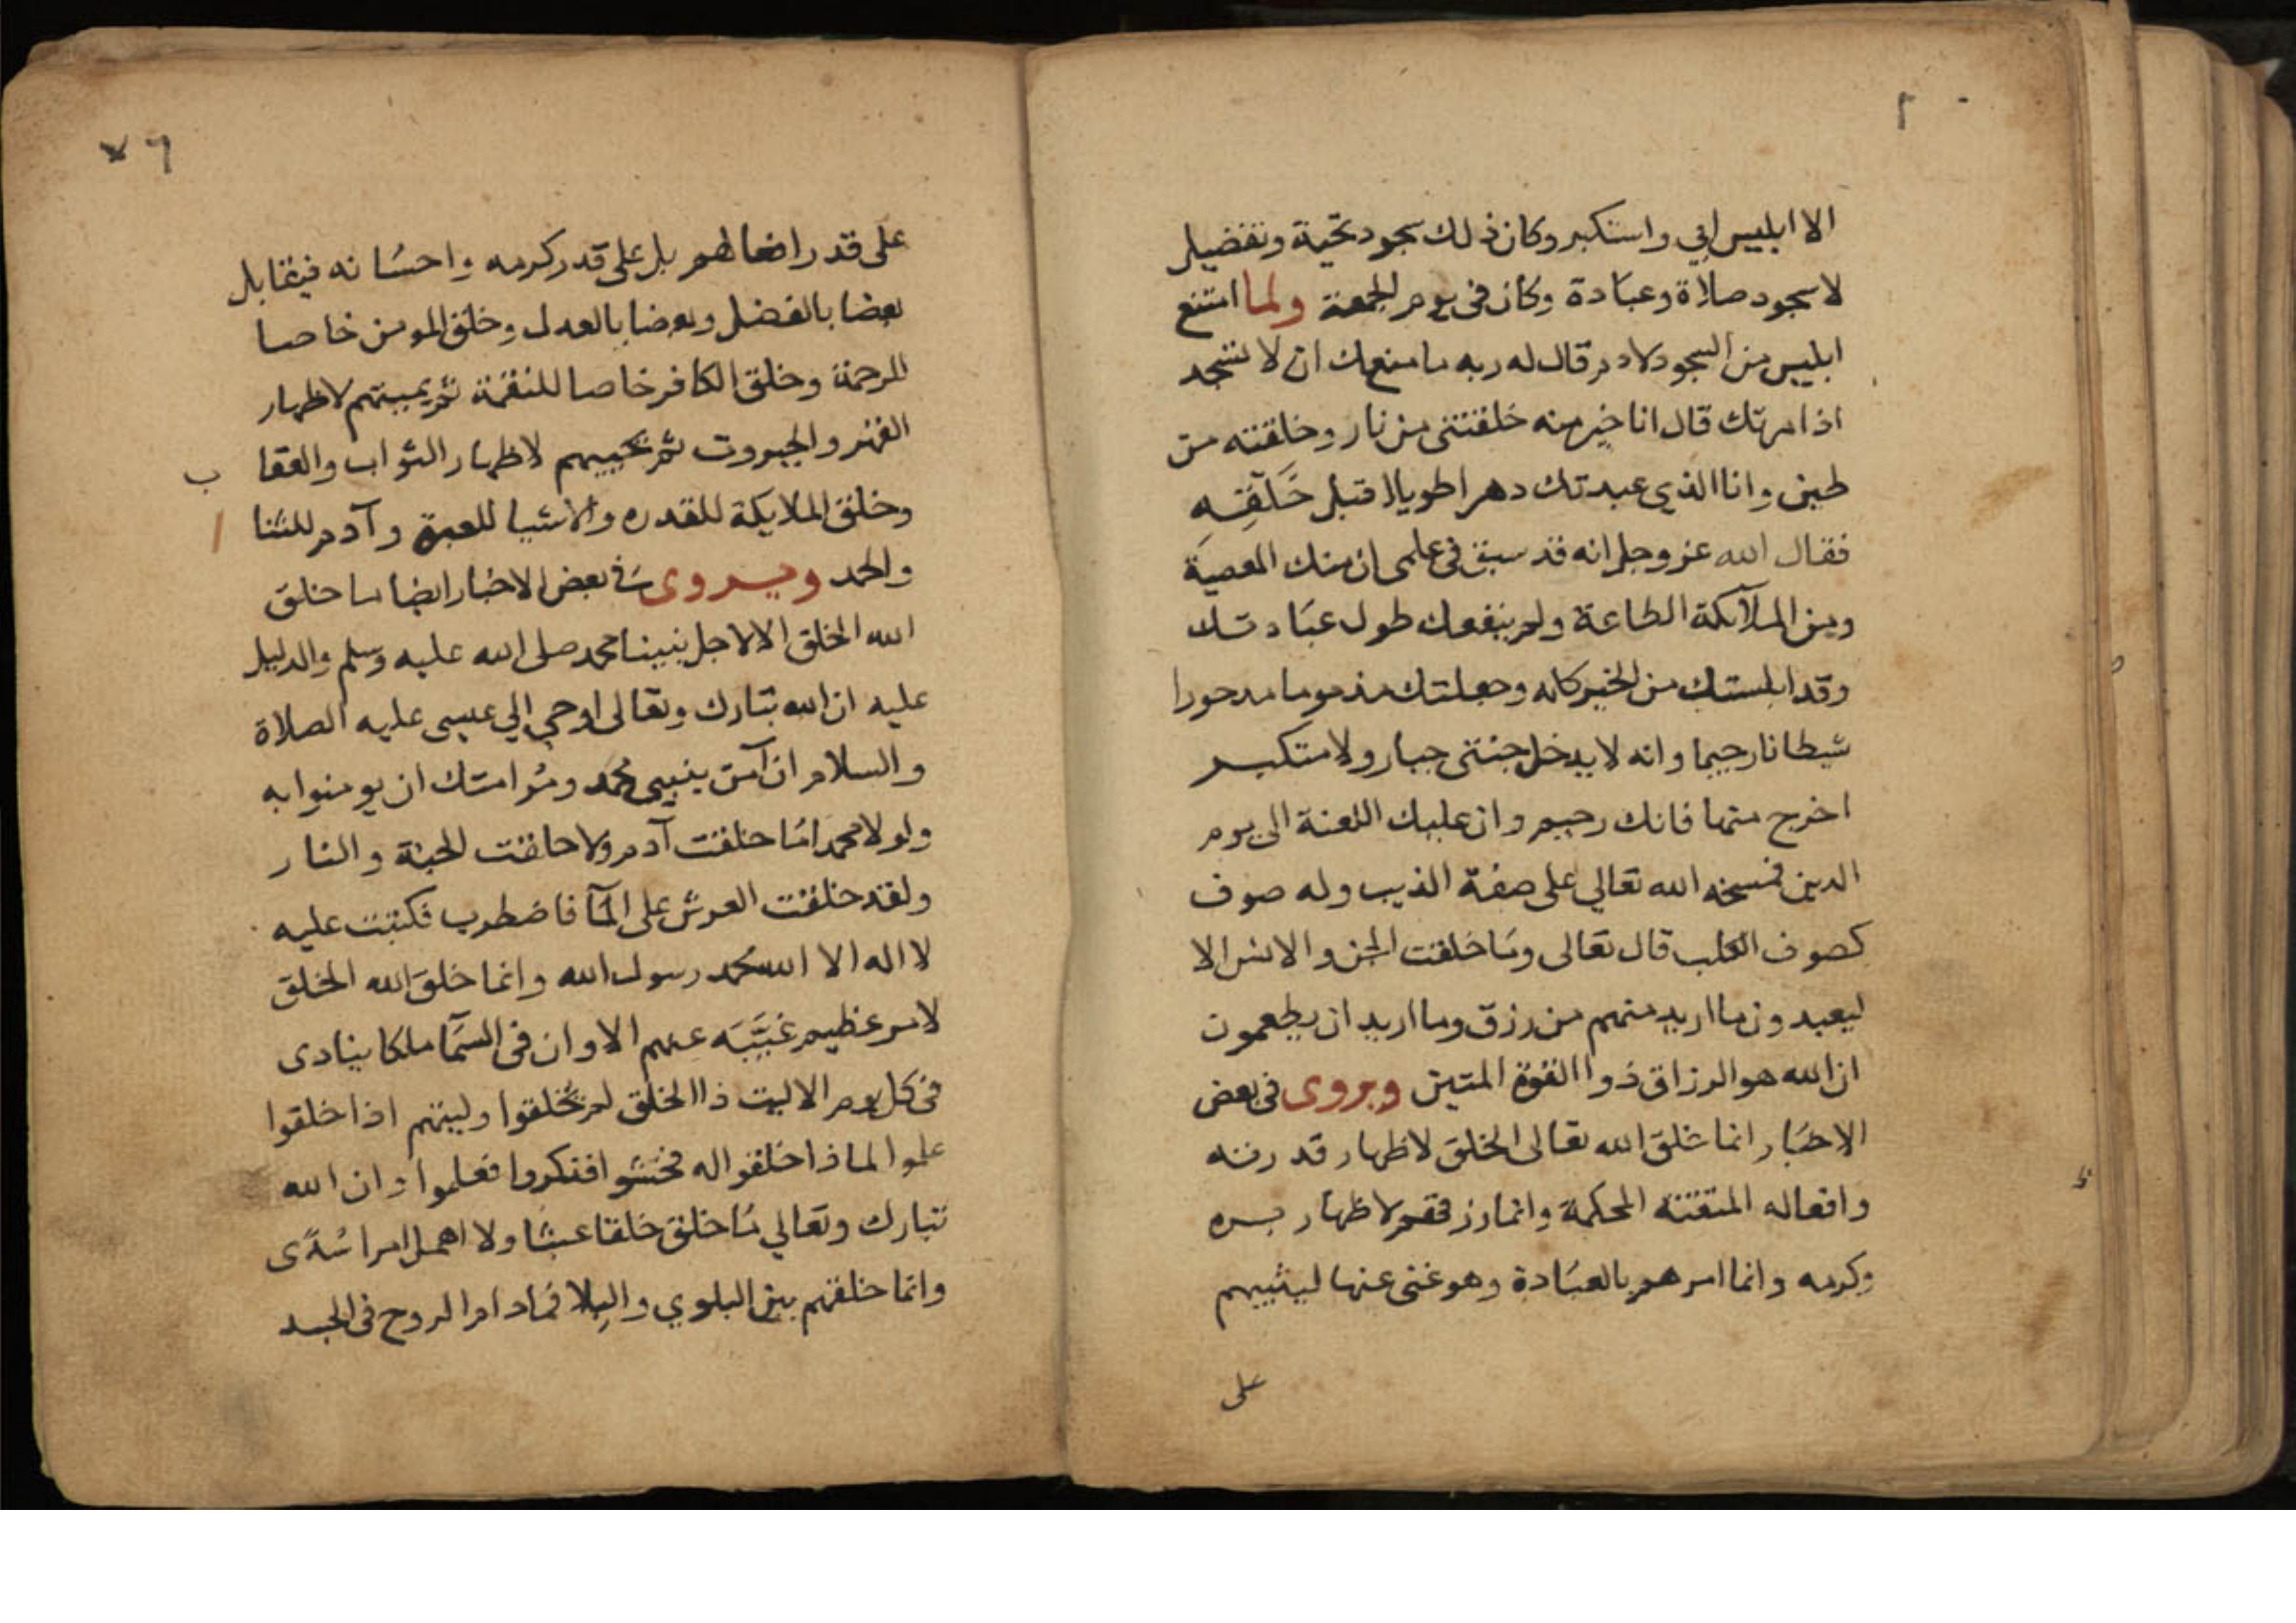 الا ابليس ابي واستكبر وكان ذلك سجود تحية وتفضيل
لا سجود صلاة وعبادة وكان في يوم الجمعة ولما امتنع
ابليس من السجود لادم قال له ربه ما منعك ان لا تسجد
اذ امرتك قال انا خير منه خلقتنى من نار وخلقته من
طين وانا الذي عبدتك دهرا طويلا قبل خَلْقِهِ
فقال الله عز وجل انه قد سبق في علمي ان منك المعصية
ومن الملآئكة الطاعة ولم ينفعك طول عبادتك
وقد ابلستك من الخير كله وجعلتك مذموما مدحورا
شيطانا رجيما وانه لا يدخل جنتى جبار ولا متكبر
اخرج منها فانك رجيم وان عليك اللعنة الى يوم
الدين فمسخه الله تعالي على صفة الذيب وله صوف
كصوف الكلب قال تعالى وما خلقت الجن والانس الا
ليعبدون ما اريد منهم من رزق وما اريد ان يطعمون
ان الله هو الرزاق ذوا القوة المتين ويروى في بعض
الاخبار انما خلق الله تعالى الخلق لاظهار قدرته
وافعاله المتقنه المحكمة وانما رزقهم لاظهار بره
وكرمه وانما امرهم بالعبادة وهو غنى عنها ليثيبهم
على
٢
٦
على قدر افعالهم بل على قدر كرمه واحسانه فيقابل
بعضا بالفضل وبعضا بالعدل وخلق المومن خاصا
للرحمة وخلق الكافر خاصا للنقمة ثم يميتهم لاظهار
القهر والجبروت ثم يحييهم لاظهار الثواب والعقاب
وخلق الملايكة للقدره والاشيا للعبرة وآدم للثنا
والحمد ويروى في بعض الاخبار ايضا ما خلق
الله الخلق الا لاجل نبينا محمد صلى الله عليه وسلم والدليل
عليه ان الله تبارك وتعالى اوحي الي عيسى عليه الصلاة
والسلام ان آمن بنبيى محمد ومُر امتك ان يومنوا به
ولولا محمدا ما خلقت آدم ولا خلقت الجنة والنار
ولقد خلقت العرش على المآ فاضطرب فكتبت عليه
لا اله الا الله محمد رسول الله وانما خلق الله الخلق
لامر عظيم غَيَّبَه عنهم الا وان فى السمآ ملكا ينادى
فى كل يوم الا ليت ذا الخلق لم يُخلقوا وليتهم اذا خلقوا
علموا لماذا خلقوا له افتكروا فعلموا وان الله
تبارك وتعالي ما خلق خلقا عبثا ولا اهمل امرا سُدًى
وانما خلقهم بين البلوي والبِلا فما دام الروح فى الجسد